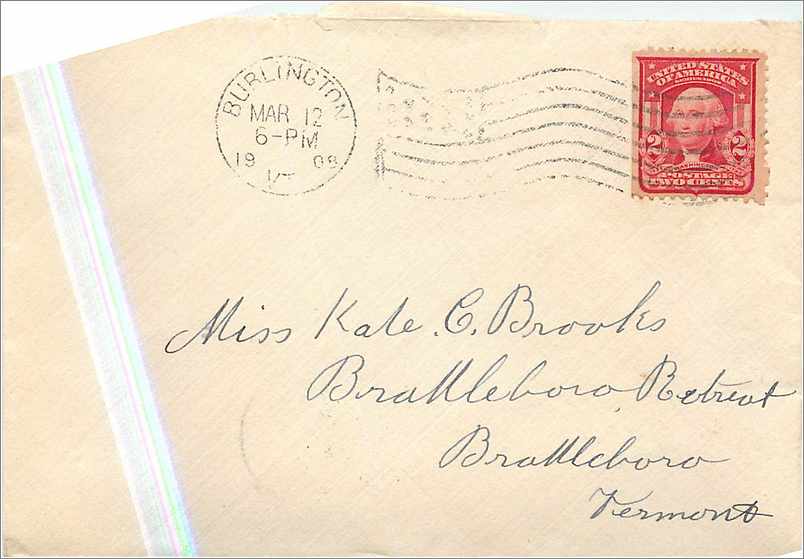 BURLINGTON
MAR 12
6-PM
19 08
VT
UNITED STATES
OF AMERICA
2 2
POSTAGE
TWO CENTS
Miss Kate. C. Brooks
Brattleboro Retreat
Brattleboro
Vermont